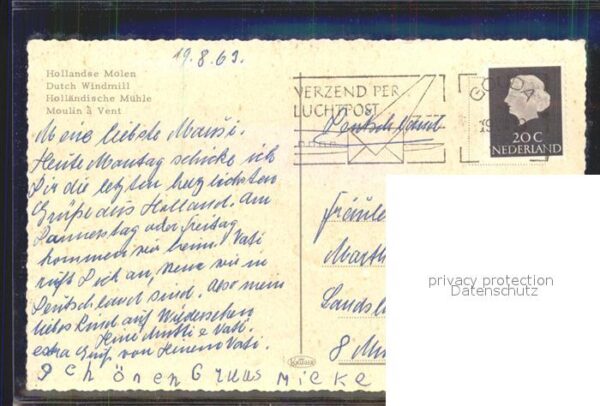 19.8.63.
Hollandse Molen
Dutch Windmill
Holländische Mühle
Moulin à Vent
VERZEND PER
LUCHTPOST
GOUDA
19
20 C
NEDERLAND
Deutschland
Meine liebste Mausi.
Heute Montag schicke ich
Dir die letzten herzlichsten
Grüße aus Holland. Am
Donnerstag oder Freitag
kommen wir heim. Vati
ruft Dich an, wenn wir in
Deutschland sind. Also mein
liebes Kind auf Wiedersehen
Deine Mutti e Vati.
extra Gruß von Deinem Vati.
Schönen Gruus Micke
Fräule
Marth
Landsb
8 Mü
privacy protection
Datenschutz